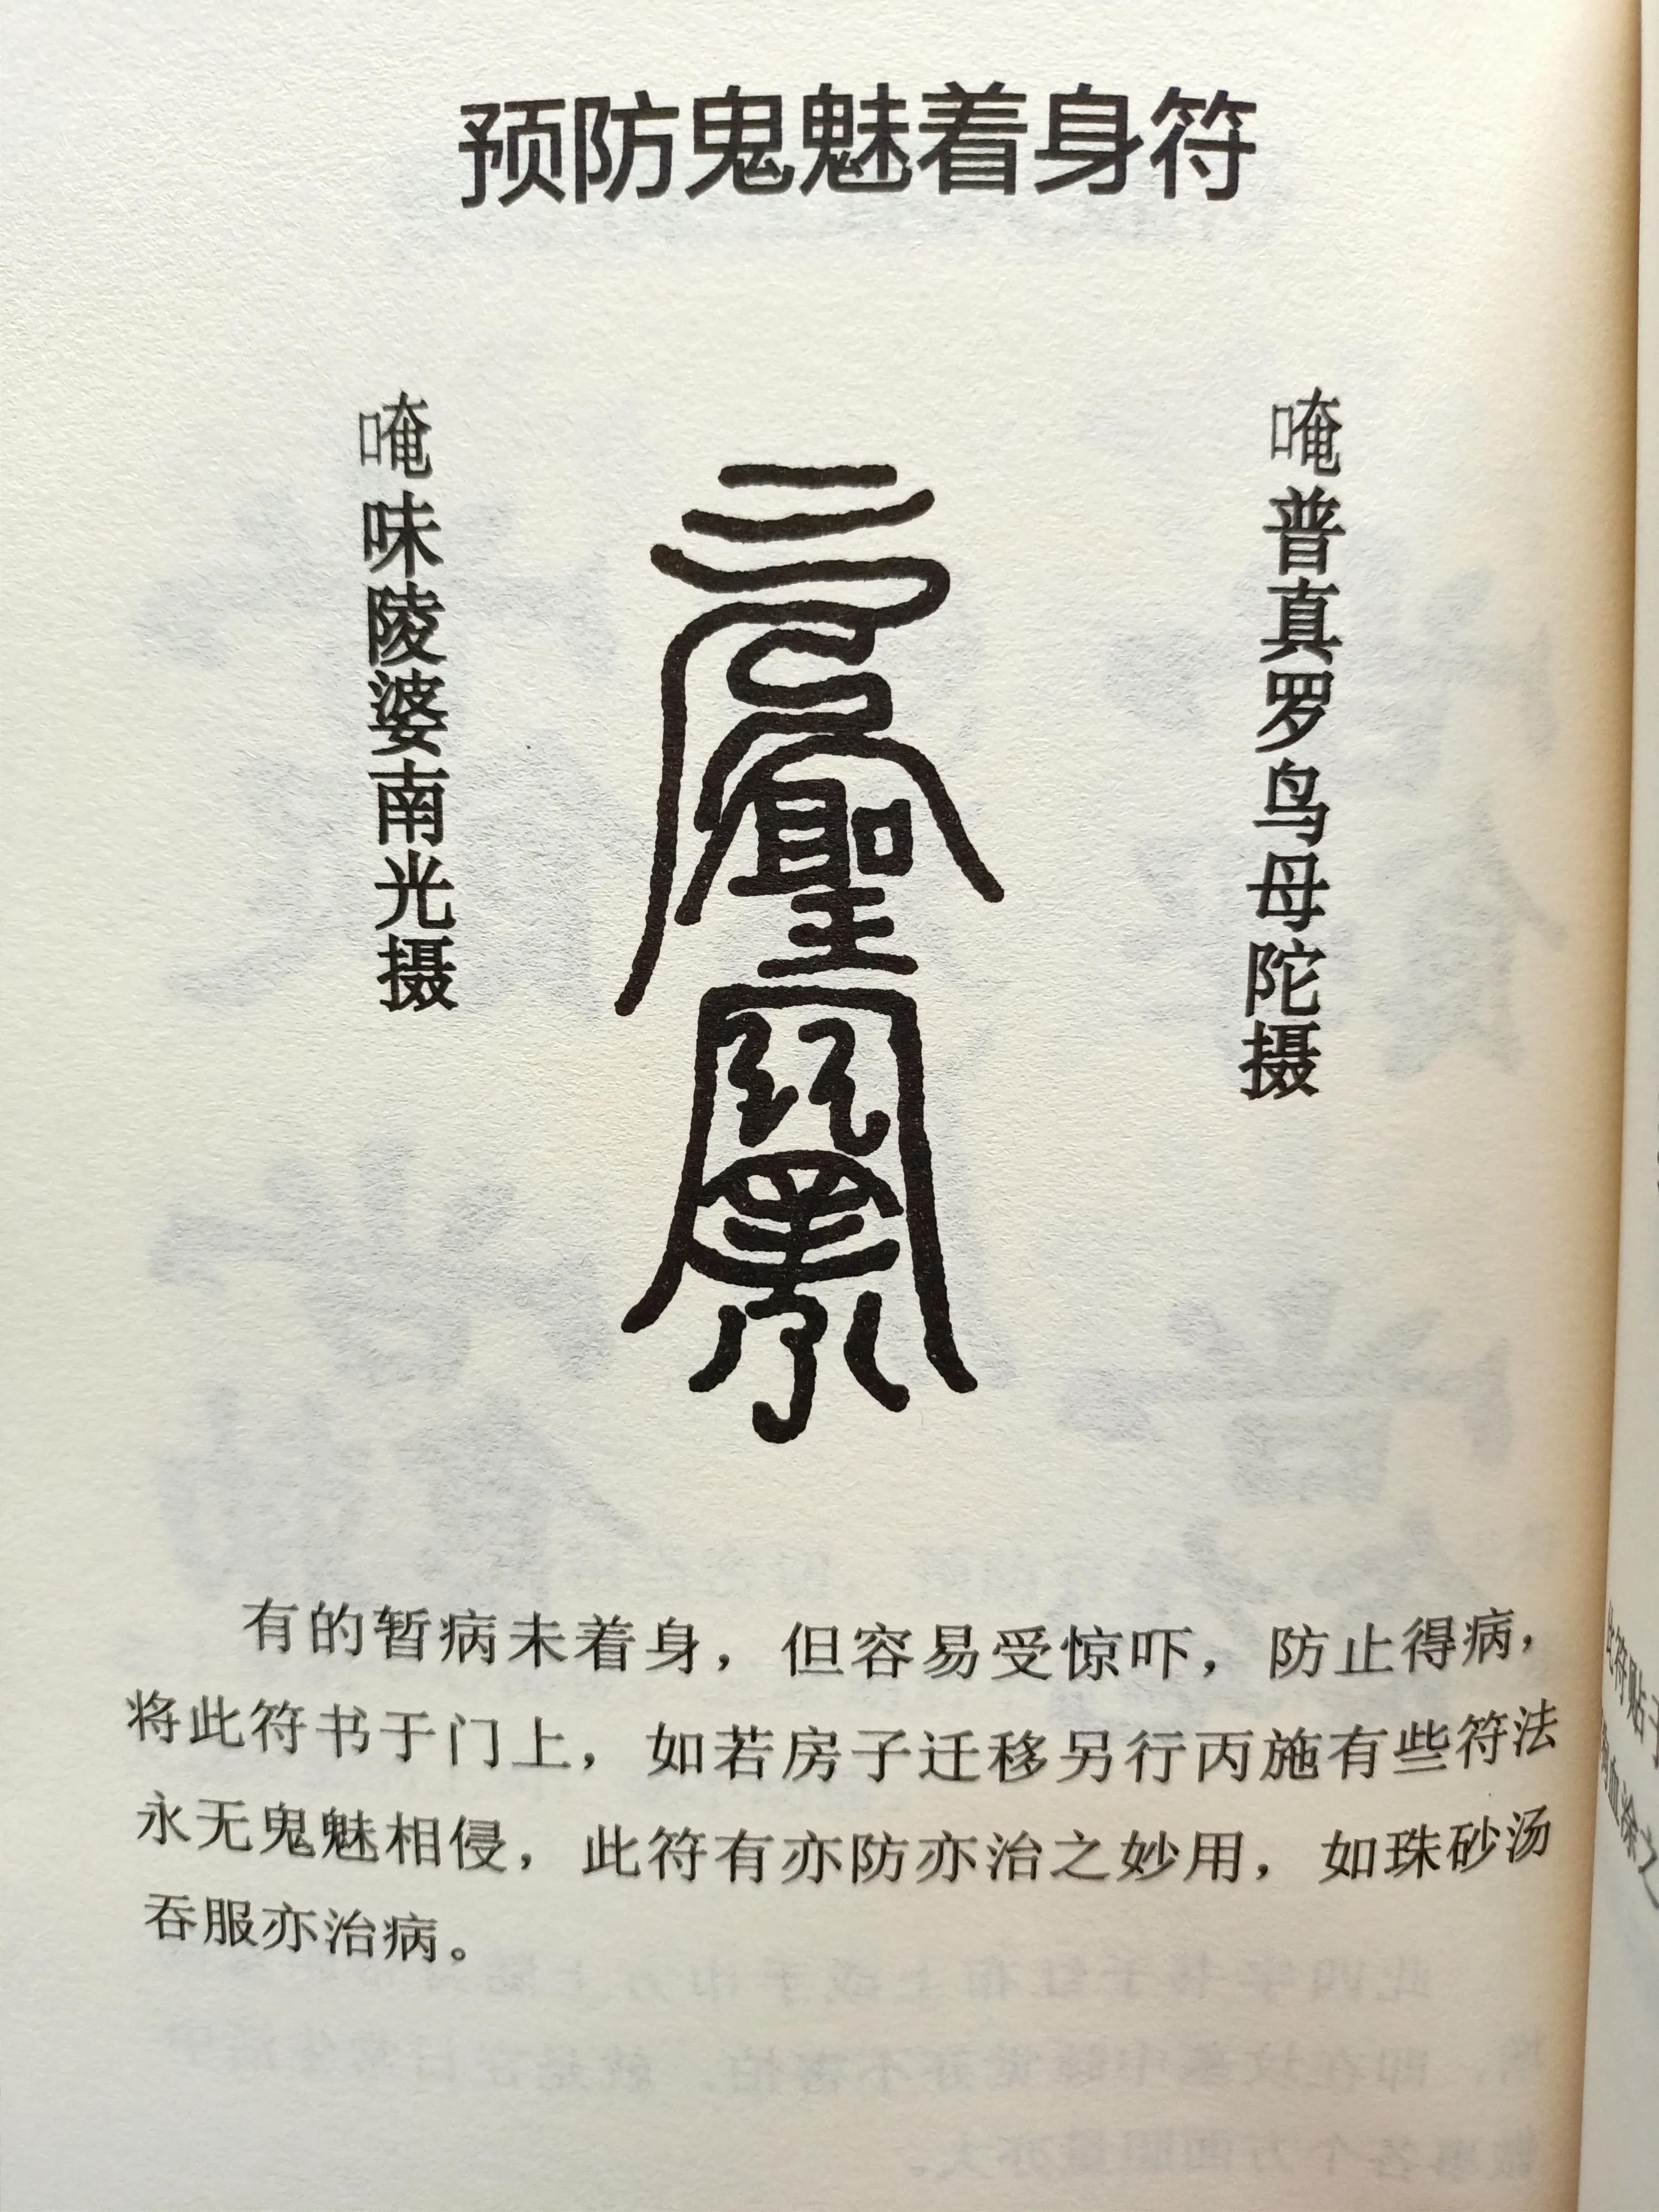 预防鬼魅着身符
唵普真罗鸟母陀摄
唵味陵婆南光摄
聖
有的暂病未着身，但容易受惊吓，防止得病，
将此符书于门上，如若房子迁移另行丙施有些符法
永无鬼魅相侵，此符有亦防亦治之妙用，如珠砂汤
吞服亦治病。
此符贴于